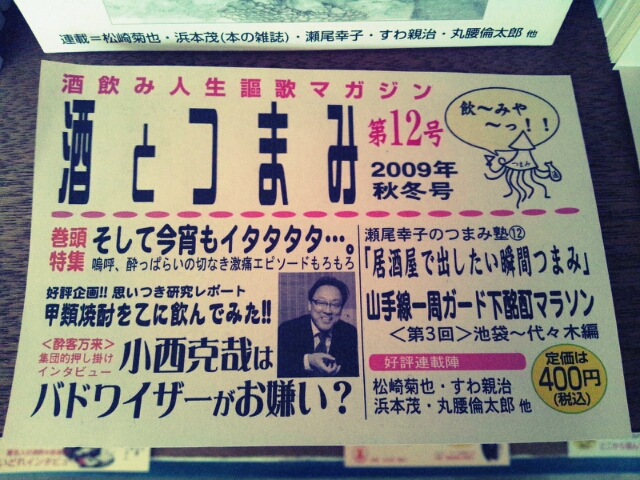 連載=松崎菊也・浜本茂(本の雑誌)・瀬尾幸子・すわ親治・丸腰倫太郎 他
酒飲み人生謳歌マガジン
酒とつまみ
第12号
2009年
秋冬号
飲〜みや
〜っ!!
つまみ
巻頭
特集
そして今宵もイタタタタ…。
嗚呼、酔っぱらいの切なき激痛エピソードもろもろ
好評企画!! 思いつき研究レポート
甲類焼酎をてに飲んでみた!!
<酔客万来>
集団的押し掛け
インタビュー
小西克哉は
バドワイザーがお嫌い?
瀬尾幸子のつまみ塾⑫
「居酒屋で出したい瞬間つまみ」
山手線一周ガード下酩酊マラソン
<第3回>池袋〜代々木編
好評連載陣
松崎菊也・すわ親治
浜本茂・丸腰倫太郎 他
定価は
400円
(税込)